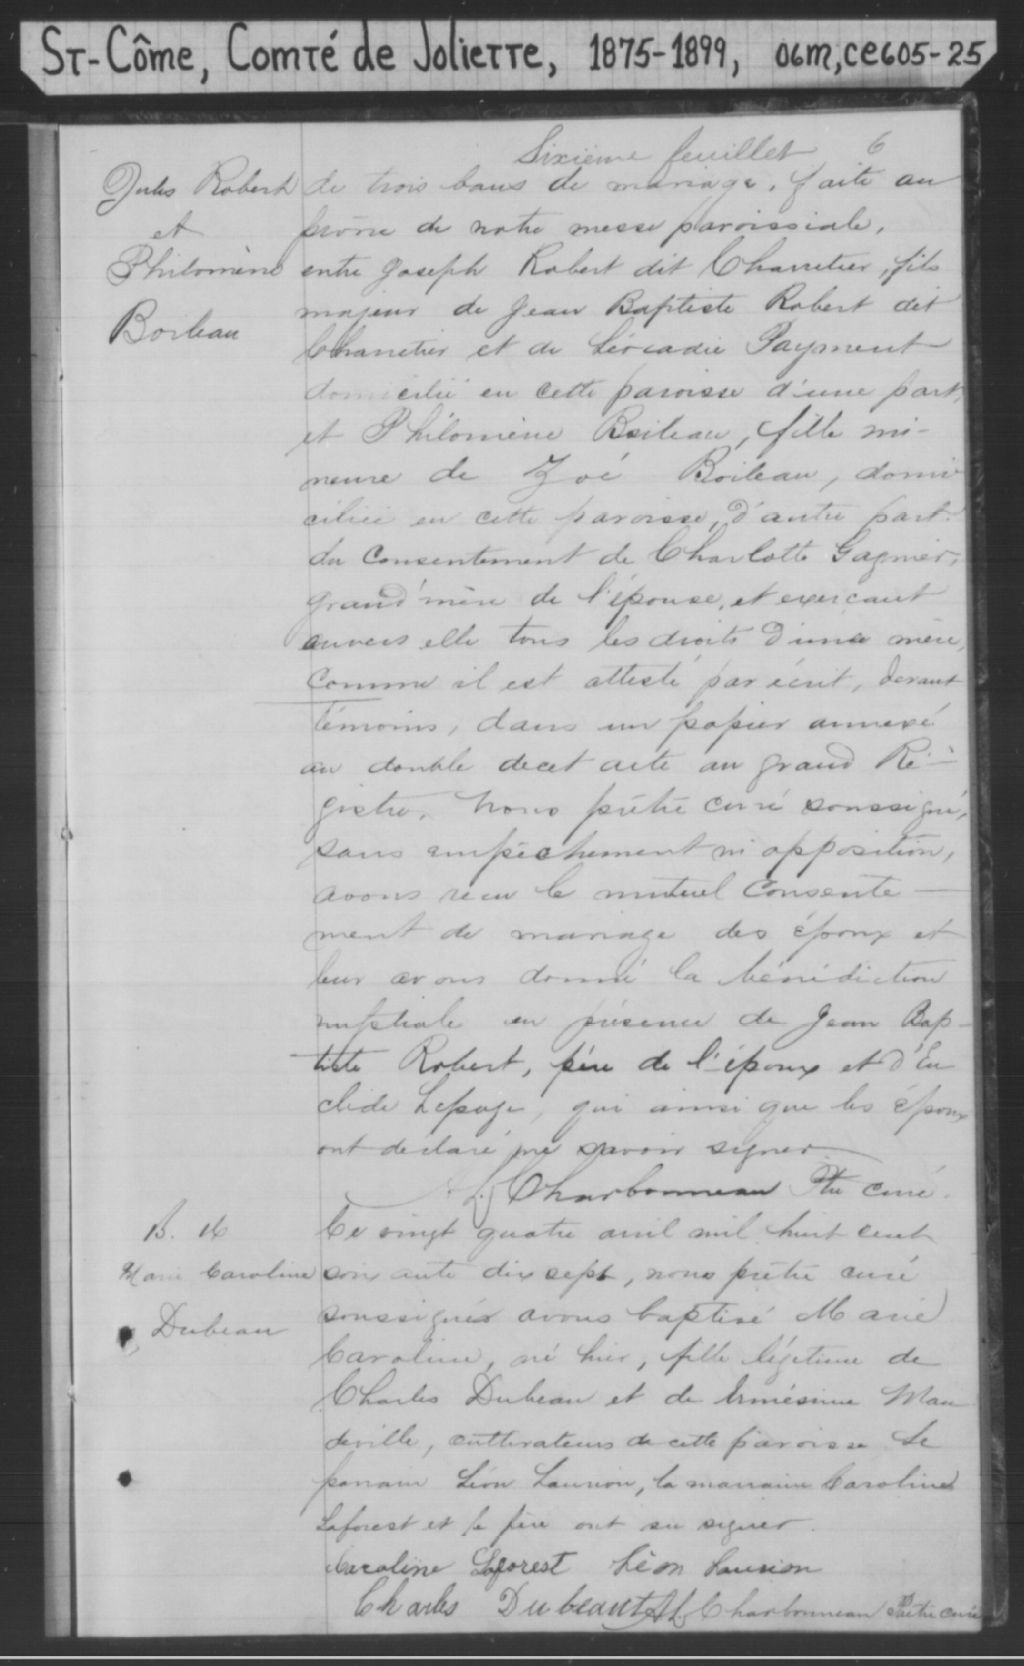 St-Côme, Comté de Joliette, 1875-1899, 06m,ce605-25
Sixième feuillet 6
Jules Robert
et
Philomène
Boileau
de trois bans de mariage, faite au
prône de notre messe paroissiale,
entre Joseph Robert dit Charretier, fils
majeur de Jean Baptiste Robert dit
Charretier et de Léocadie Payment
domicilié en cette paroisse d'une part,
et Philomène Boileau, fille mi-
neure de Zoé Boileau, domi
ciliée en cette paroisse, d'autre part.
du consentement de Charlotte Gagnier,
grand'mère de l'épouse, et exerçant
envers elle tous les droits d'une mère,
comme il est attesté par écrit, devant
témoins, dans un papier annexé
au double decet acte au grand Ré-
gistre. Nous prêtre curé soussigné,
sans empêchement ni opposition,
avons reçu le mutuel consente-
ment de mariage des époux et
leur avons donné la bénédiction
nuptiale en présence de Jean Bap-
tiste Robert, père de l'époux et d'Eu
clide Lepage, qui ainsi que les époux
ont déclaré ne savoir signer
Charbonneau Ptre curé.
B. 16
Marie Caroline
Dubeau
Ce vingt quatre avril mil huit cent
soixante dix sept, nous prêtre curé
soussigné avons baptisé Marie
Caroline, né hier, fille légitime de
Charles Dubeau et de Herménime Man
deville, cultivateurs de cette paroisse Le
parrain Léon Laurion, la marraine Caroline
Laforest et le père ont su signer.
Caroline Laforest Léon Laurion
Charles Dubeau Charbonneau Prêtre curé